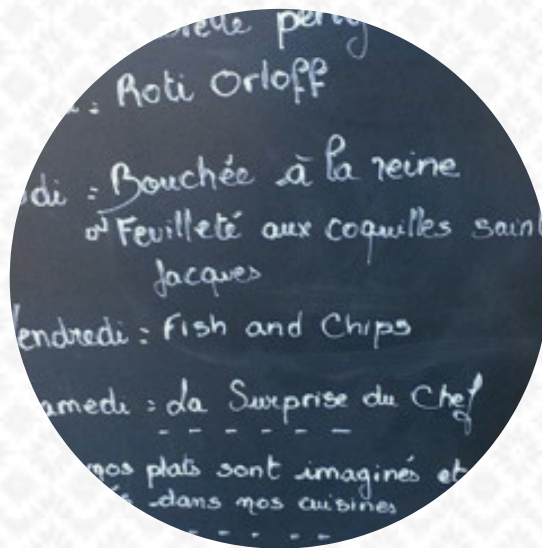 : Roti Orloff
di : Bouchée à la reine
ou Feuilleté aux coquilles saint
Jacques
endredi : Fish and Chips
amedi : La Surprise du Chef
- - - - - -
nos plats sont imaginés et
dans nos cuisines